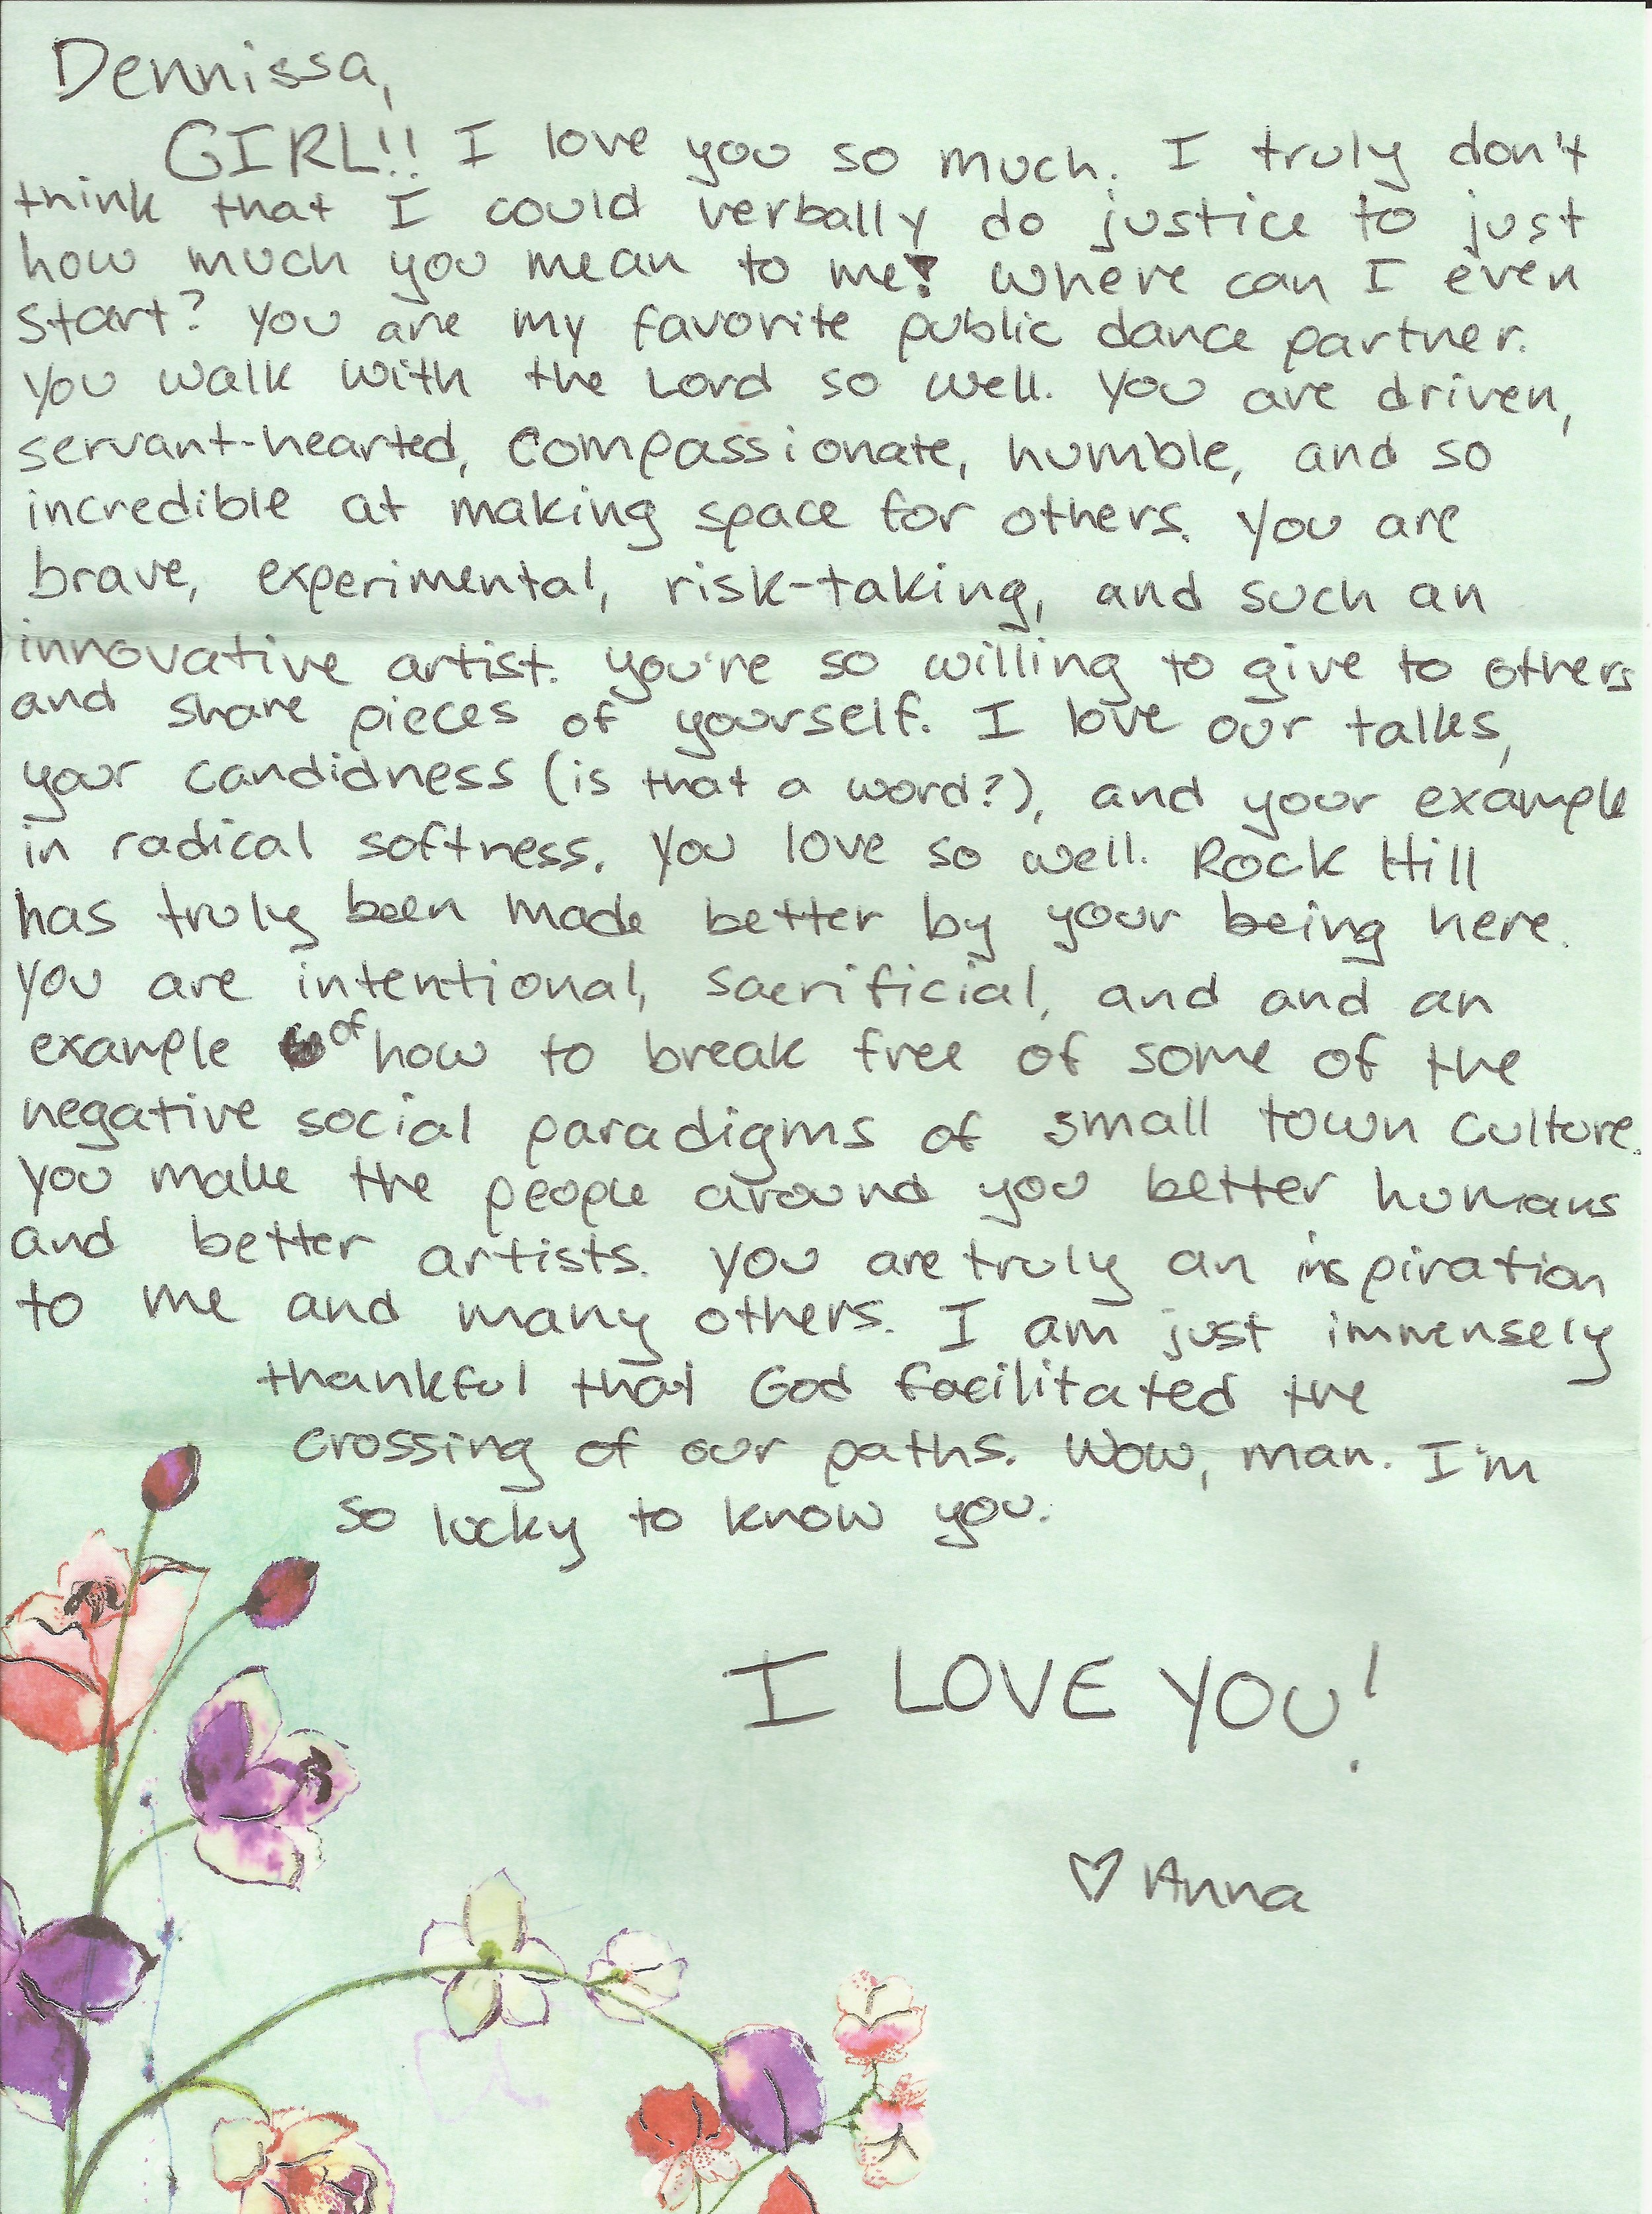 Dennissa,
GIRL!! I love you so much. I truly don't
think that I could verbally do justice to just
how much you mean to me! Where can I even
start? You are my favorite public dance partner.
You walk with the Lord so well. You are driven,
servant-hearted, compassionate, humble, and so
incredible at making space for others. You are
brave, experimental, risk-taking, and such an
innovative artist. You're so willing to give to others
and share pieces of yourself. I love our talks,
your candidness (is that a word?), and your example
in radical softness. You love so well. Rock Hill
has truly been made better by your being here.
You are intentional, sacrificial, and and an
example of how to break free of some of the
negative social paradigms of small town culture.
You make the people around you better humans
and better artists. You are truly an inspiration
to me and many others. I am just immensely
thankful that God facilitated the
crossing of our paths. Wow, man. I'm
so lucky to know you.
I LOVE YOU!
♡ Anna